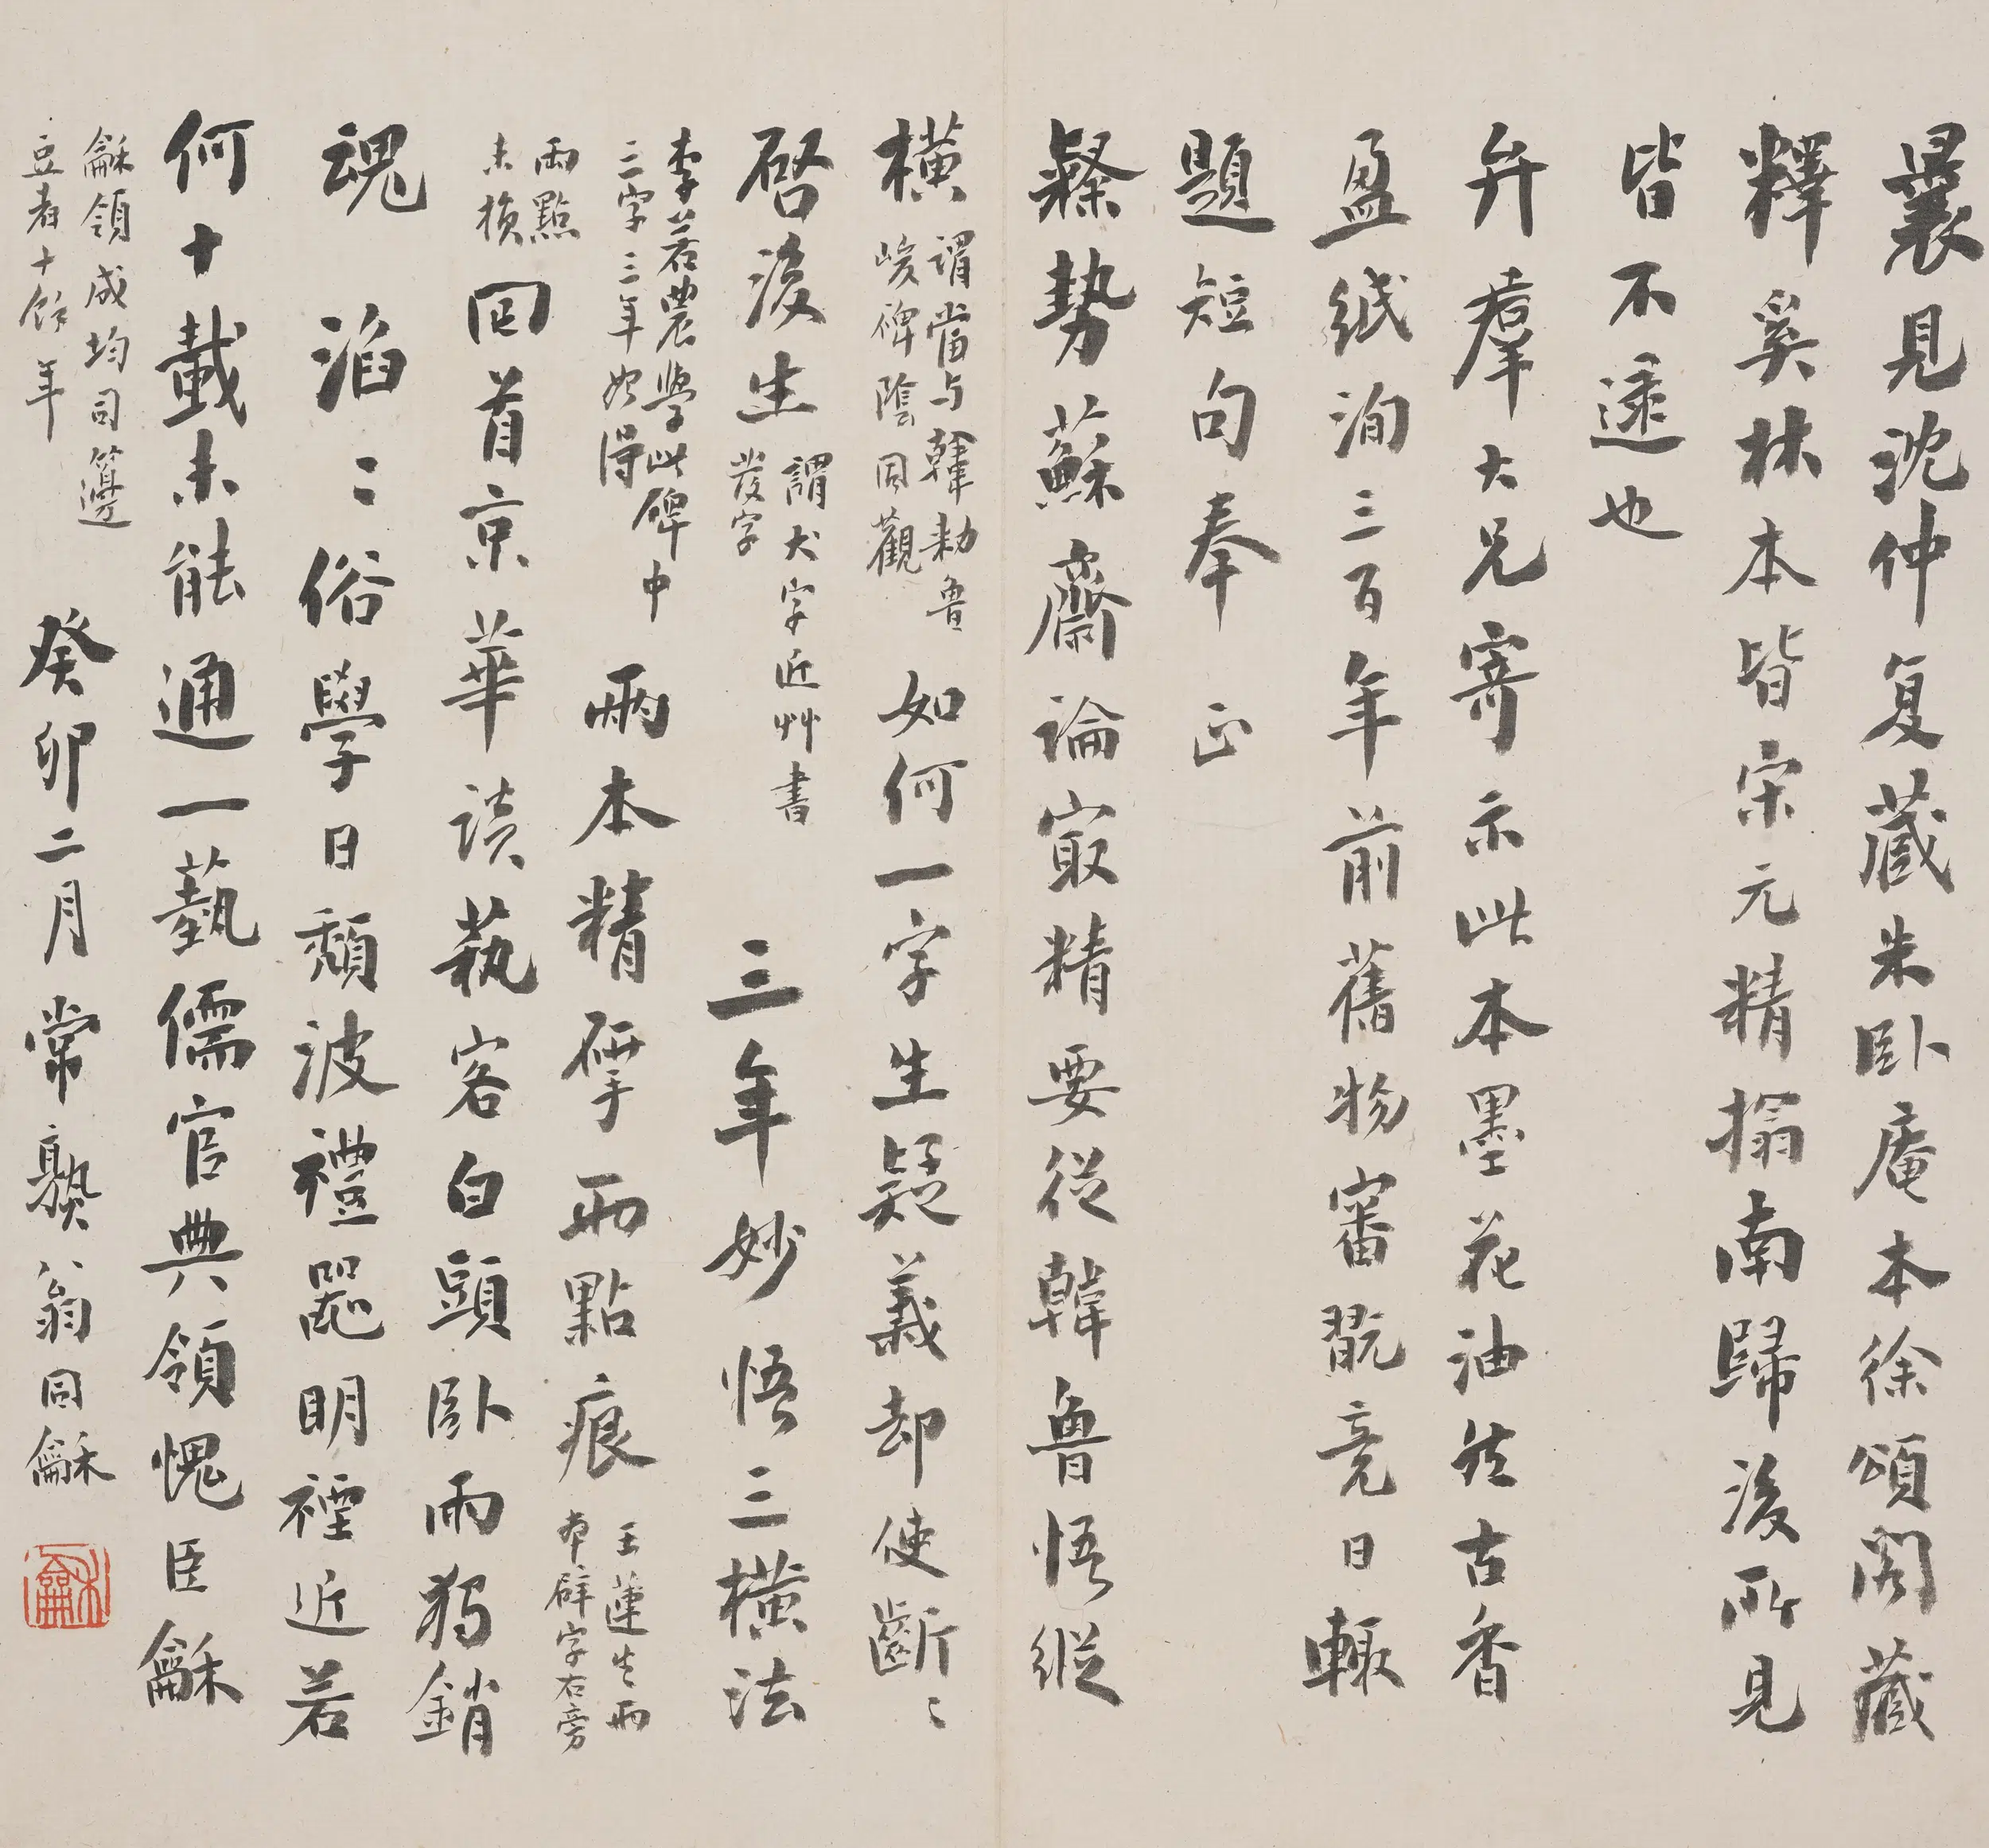 曩見沈仲复藏朱臥庵本徐頌閣藏
釋奚林本皆宋元精搨南歸後所見
皆不逮也
弁羣大兄寄示此本墨花油然古香
盈紙洵三百年前舊物審翫竟日輙
題短句奉 正
隸勢蘇齋論㝡精要從韓魯悟縱
橫 謂當与韓勑魯峻碑陰同觀 如何一字生疑義却使齗〻
啓後生 謂犬字近艸書犮字 三年妙悟三橫法
李若農學此碑中二字三年始得 兩本精揅兩點痕 王蓮生兩本辟字右旁
兩點未損 回首京華談蓺客白頭臥雨獨銷
魂 滔〻俗學日頹波禮器明禋近若
何十載未能通一藝儒官典領愧臣龢
龢領成均司籩豆者十餘年 癸卯二月常熟翁同龢